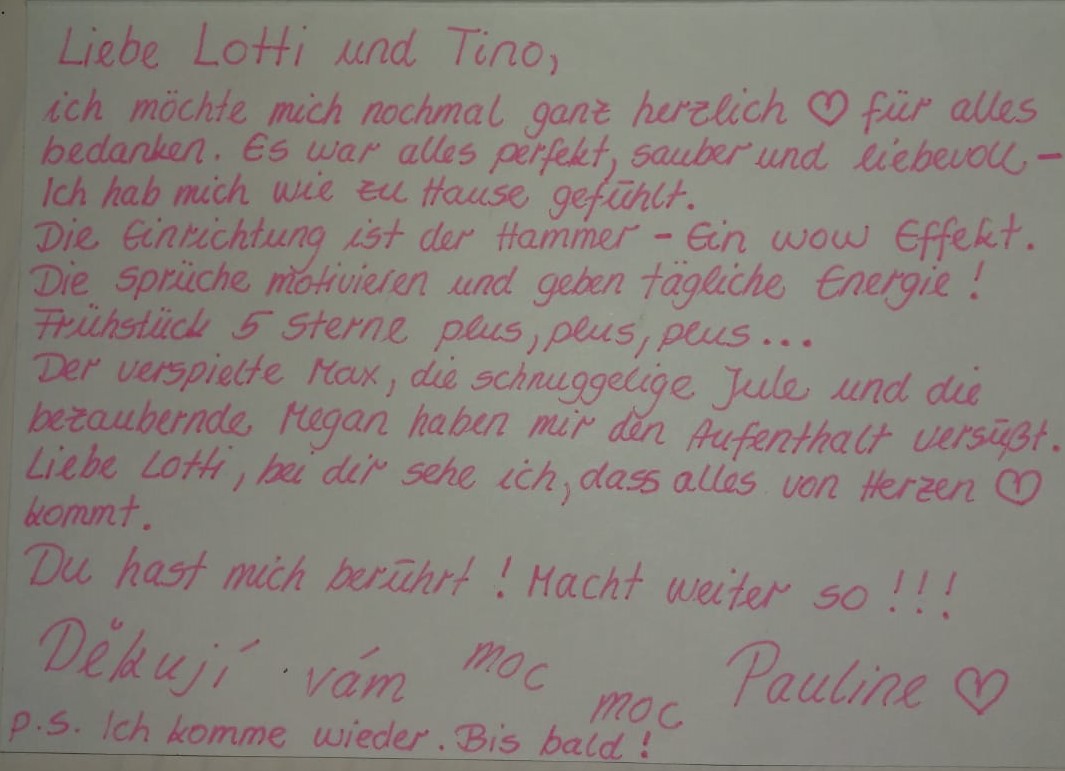 Liebe Lotti und Tino,
ich möchte mich nochmal ganz herzlich ♡ für alles
bedanken. Es war alles perfekt, sauber und liebevoll –
Ich hab mich wie zu Hause gefühlt.
Die Einrichtung ist der Hammer – Ein wow Effekt.
Die Sprüche motivieren und geben tägliche Energie!
Frühstück 5 Sterne plus, plus, plus...
Der verspielte Max, die schnuggelige Jule und die
bezaubernde Megan haben mir den Aufenthalt versüßt.
Liebe Lotti, bei dir sehe ich, dass alles von Herzen ♡
kommt.
Du hast mich berührt! Macht weiter so!!!
Děkuji vám moc moc Pauline ♡
p.s. Ich komme wieder. Bis bald!